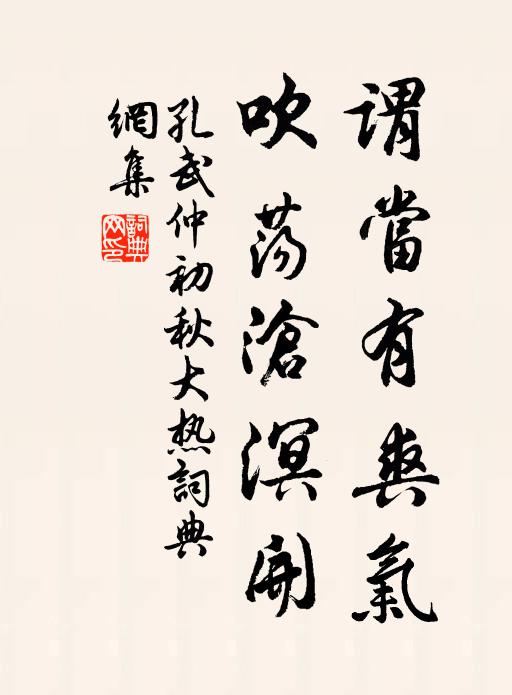 謂當有爽氣
吹蕩滄溟開
孔武仲初秋大热詞典
網集
詞典網印